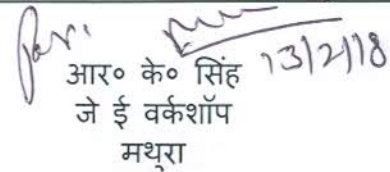 13/2/18
आर० के० सिंह
जे ई वर्कशॉप
मथुरा